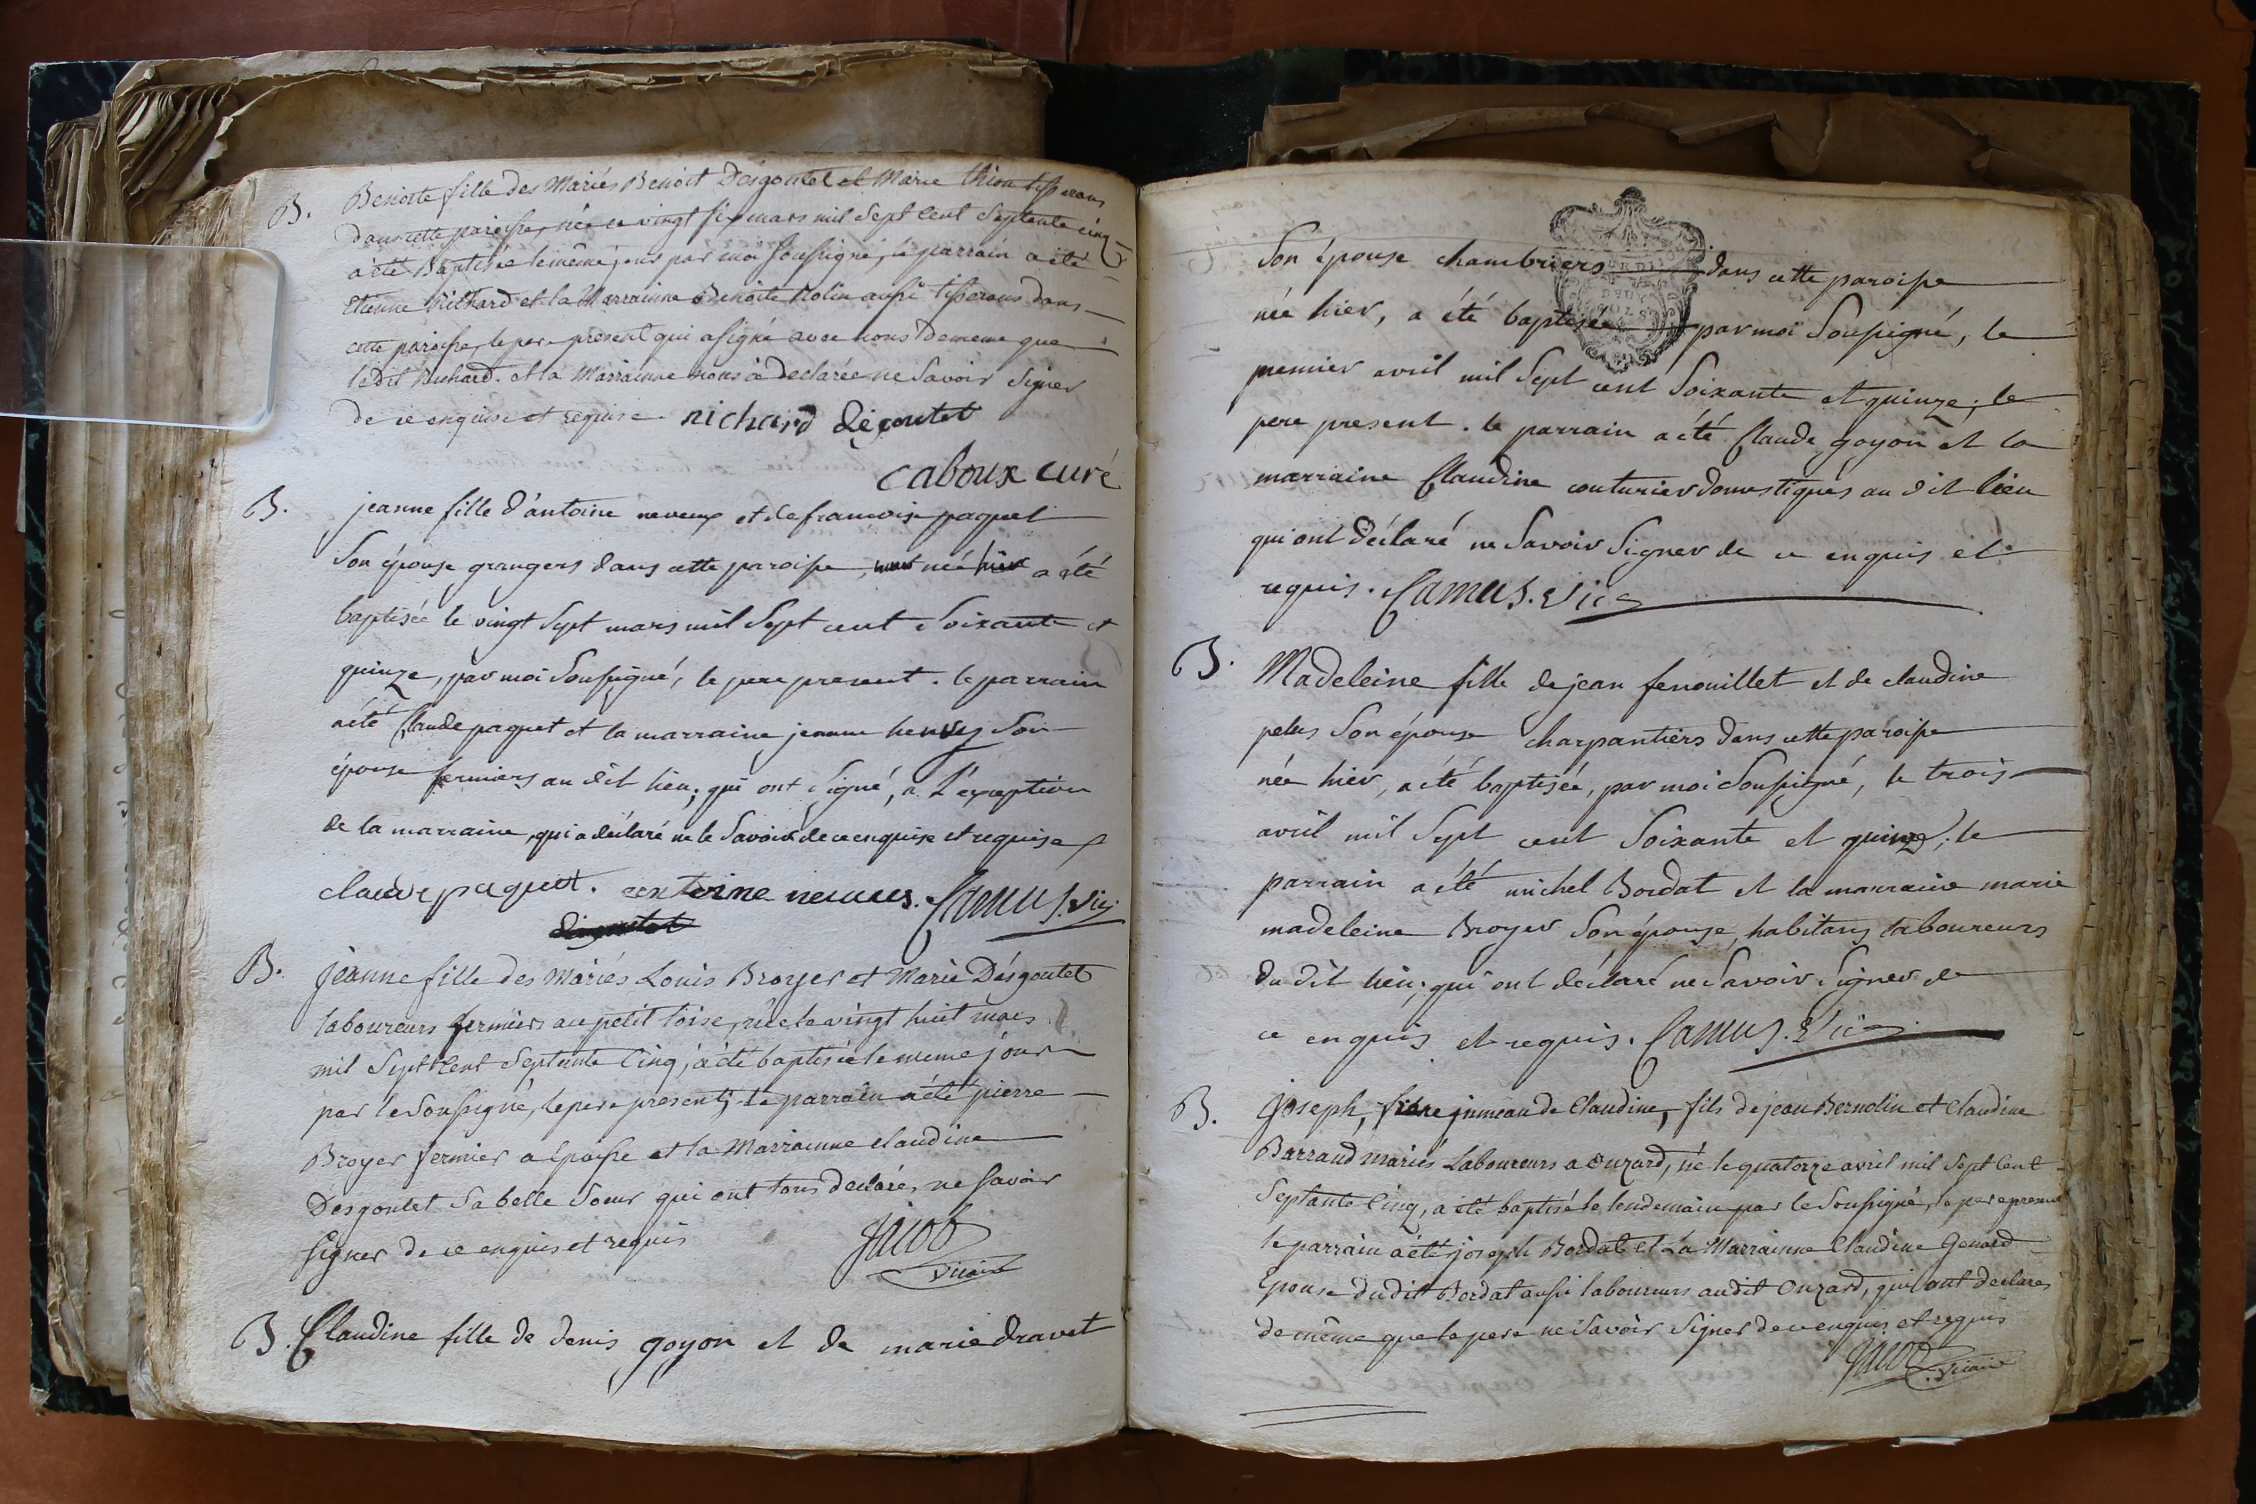 B. Benoite fille des Mariés Benoit Desgoutet et Marie thion tisserans
dans cette paroisse, née ce vingt six mars mil sept cent septente cinq
a été Baptisée le même jour par moi soussigné, le parrain a été
Etienne Richard et la Marrainne Benoite Nolin aussi tisserans dans
cette paroisse, le pere présent qui a signé avec nous de meme que
ledit Richard. et la Marrainne nous à declarée ne savoir signer
de ce enquise et requise richard dégoutet
caboux curé
B. jeanne fille d'antoine neveux et de francoise paquet
son épouse grangers dans cette paroisse, née hier a été
baptisée le vingt sept mars mil sept cent soixante et
quinze, par moi soussigné, le pere present. le parrain
a été Claude paquet et la marraine jeanne henry son
épouse fermiers au dit lieu; qui ont signé, a l'exception
de la marraine, qui a déclaré ne le savoir de ce enquise et requise
claude paquet. antoine neveus. Camus. Vic.
B. jeanne fille des Mariés Louis Broyer et Marie Désgoutet
laboureurs fermiers au petit toise, née le vingt huit mars
mil sept Cent septente Cinq, a été baptisée le meme jour
par le soussigné, le pere present; le parrain a été pierre
Broyer fermier a épaisse et la Marrainne claudine
Desgoutet sa belle soeur qui ont tous declarés ne savoir
signer de ce enquis et requis Jacob
vicaire
B. Claudine fille de denis goyon et de marie dravet
son épouse chambriers dans cette paroisse
née hier, a été baptisée par moi soussigné, le
premier avril mil sept cent soixante et quinze; le
pere present. le parrain a été Claude goyon et la
marraine Claudine couturier domestiques au dit lieu
qui ont déclaré ne savoir signer de ce enquis et
requis. Camus. Vic.
B. Madeleine fille de jean fenouillet et de claudine
pelus son épouse charpantiers dans cette paroisse
née hier, a été baptisée, par moi soussigné, le trois
avril mil sept cent soixante et quinze; le
parrain a été michel Bordat et la marraine marie
madeleine Broyer son épouse, habitans laboureurs
du dit lieu; qui ont déclaré ne savoir signer de
ce enquis et requis. Camus. Vic.
B. joseph, frere jumeau de Claudine, fils de jean Bernolin et Claudine
Barraud mariés Laboureurs a Ouzard, né le quatorze avril mil sept Cent
septante Cinq, a été baptisé le lendemain par le soussigné, le pere present
le parrain a été joseph Bordat et La Marrainne Claudine Genard
épouse dudit Bordat aussi laboureurs audit Ouzard, qui ont declarés
de même que le pere ne savoir signer de ce enquis et requis
Jacob vicaire